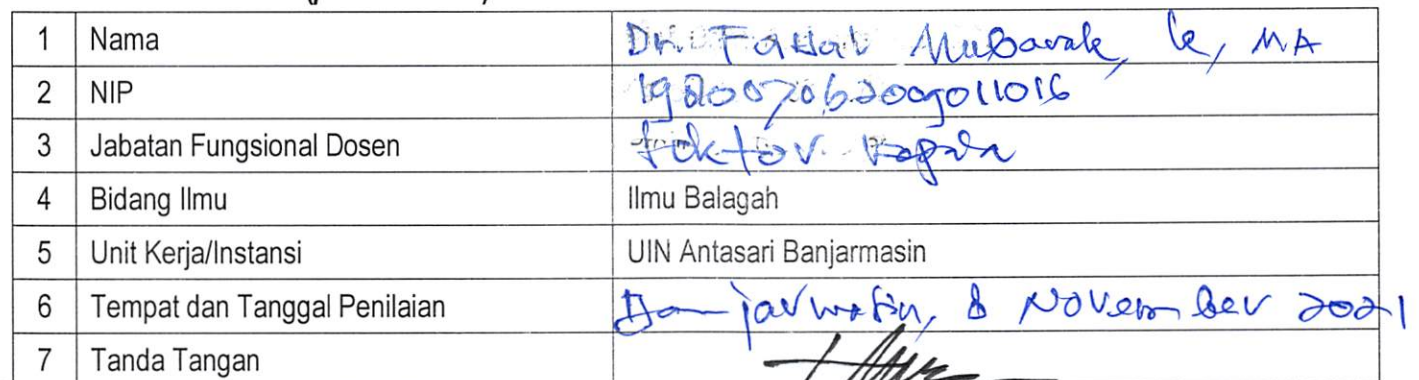 1 Nama Dr. Fattal Mubarak, Lc, MA
2 NIP 198007062009011016
3 Jabatan Fungsional Dosen Lektor Kepala
4 Bidang Ilmu Ilmu Balagah
5 Unit Kerja/Instansi UIN Antasari Banjarmasin
6 Tempat dan Tanggal Penilaian Banjarmasin, 8 November 2021
7 Tanda Tangan